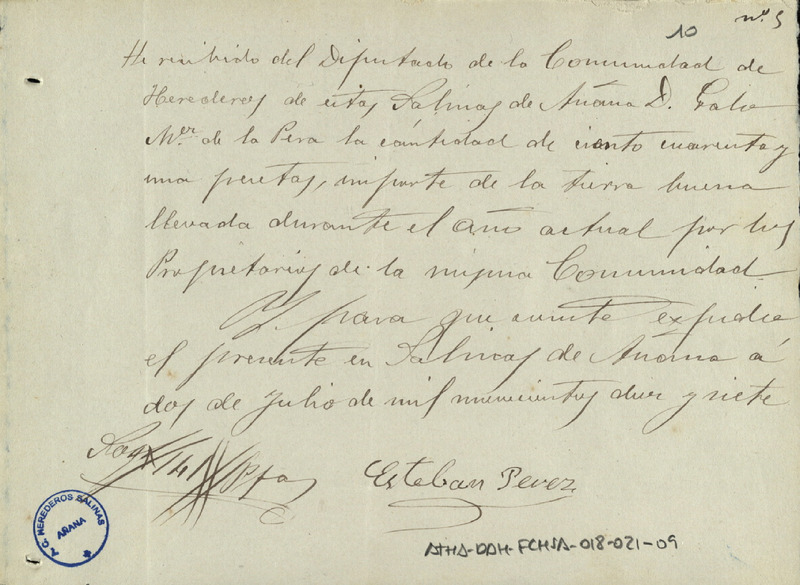 10 nº 5
He recibido del Diputado de la Comunidad de
Herederos de estas Salinas de Añana D. Galo
M.er de la Pera la cántidad de ciento cuarenta y
una pesetas, importe de la tierra buena
llevada durante el año actual por los
Propietarios de la misma Comunidad.
Y para que conste expido
el presente en Salinas de Añana á
dos de Julio de mil novecientos diez y siete
Son 141 Ptas
Esteban Perez
T.C. HEREDEROS SALINAS
AÑANA
ATHA-DAH-FCHSA-018-021-09